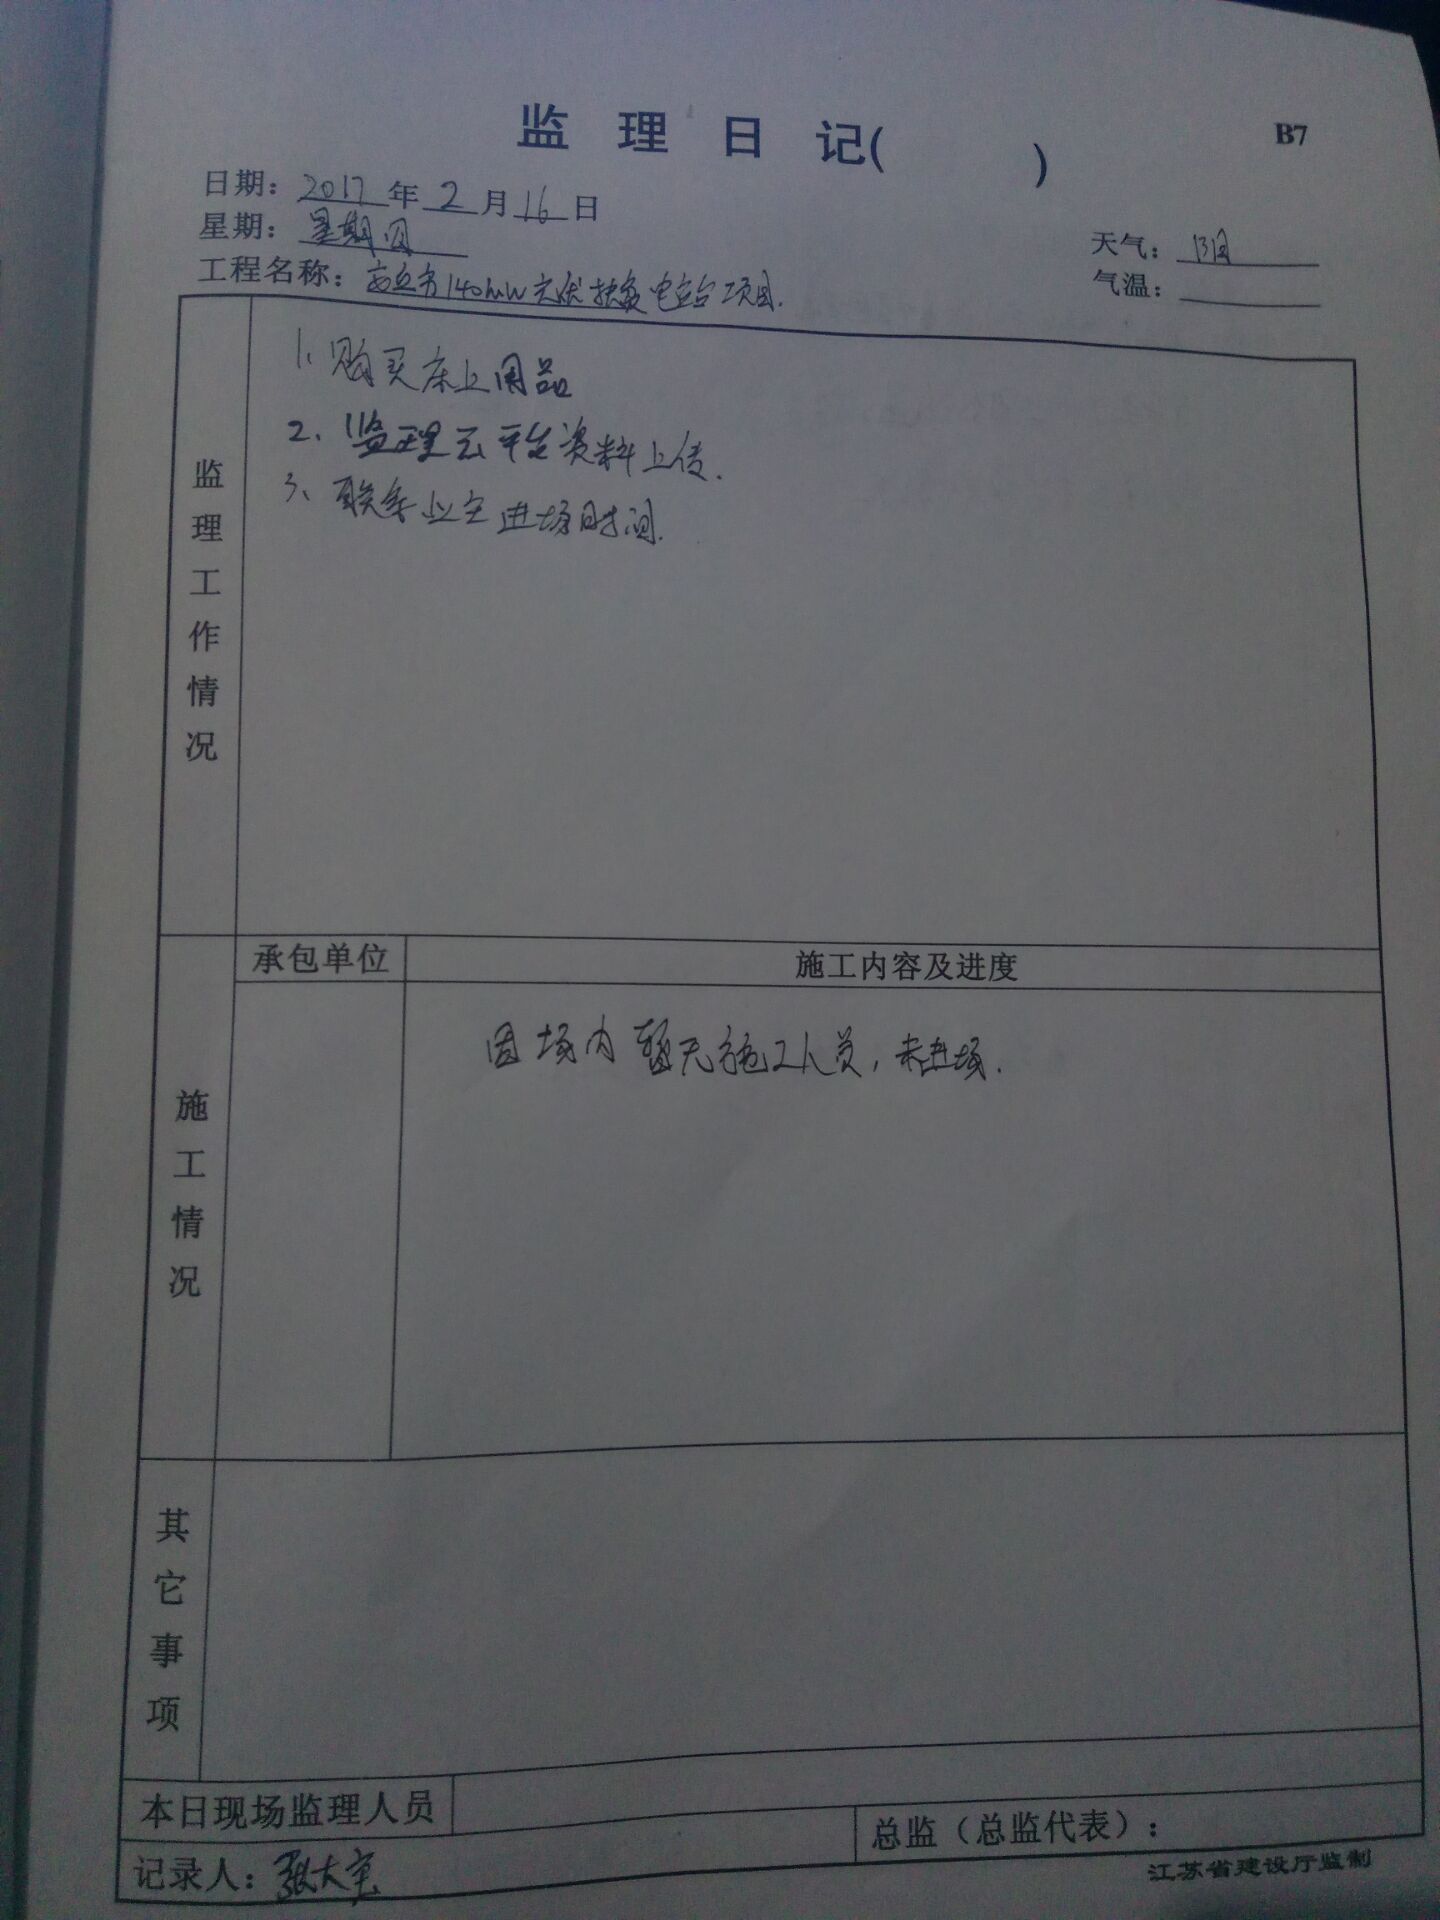 监理日记(          )
B7
日期：2017年2月16日
星期：星期四
天气：阴
工程名称：安丘市140MW光伏扶贫电站项目.
气温：
监理工作情况
1、购买床上用品
2、监理云平台资料上传.
3、联系业主进场时间.
施工情况
承包单位
施工内容及进度
因场内暂无施工人员，未进场.
其它事项
本日现场监理人员
总监（总监代表）：
记录人：张大
江苏省建设厅监制